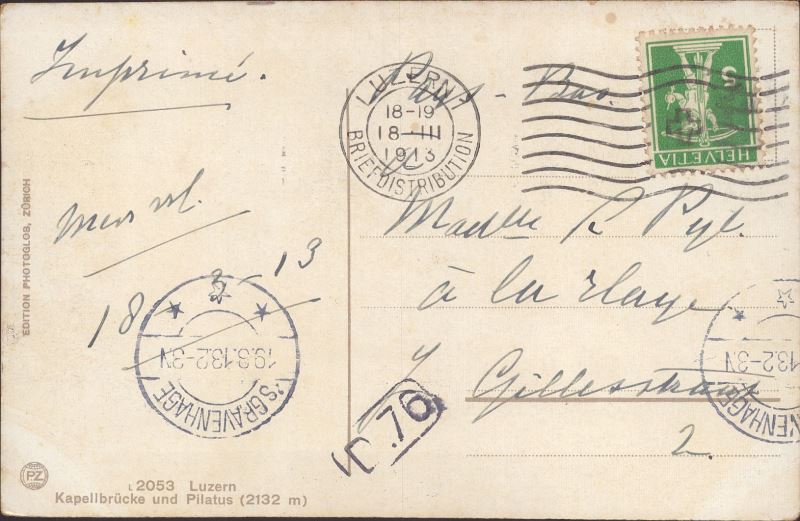 Imprimé.
Pays-Bas.
LUZERN 1
18-19
18-III
1913
BRIEFDISTRIBUTION
5
HELVETIA
à
EDITION PHOTOGLOB, ZÜRICH
18-3-13
Madlle R Pyl.
à la Haye
's GRAVENHAGE
19.3.13 2-3N
's GRAVENHAGE
13 2-3N
Gillesstraat
2.
76
PZ
L 2053 Luzern
Kapellbrücke und Pilatus (2132 m)